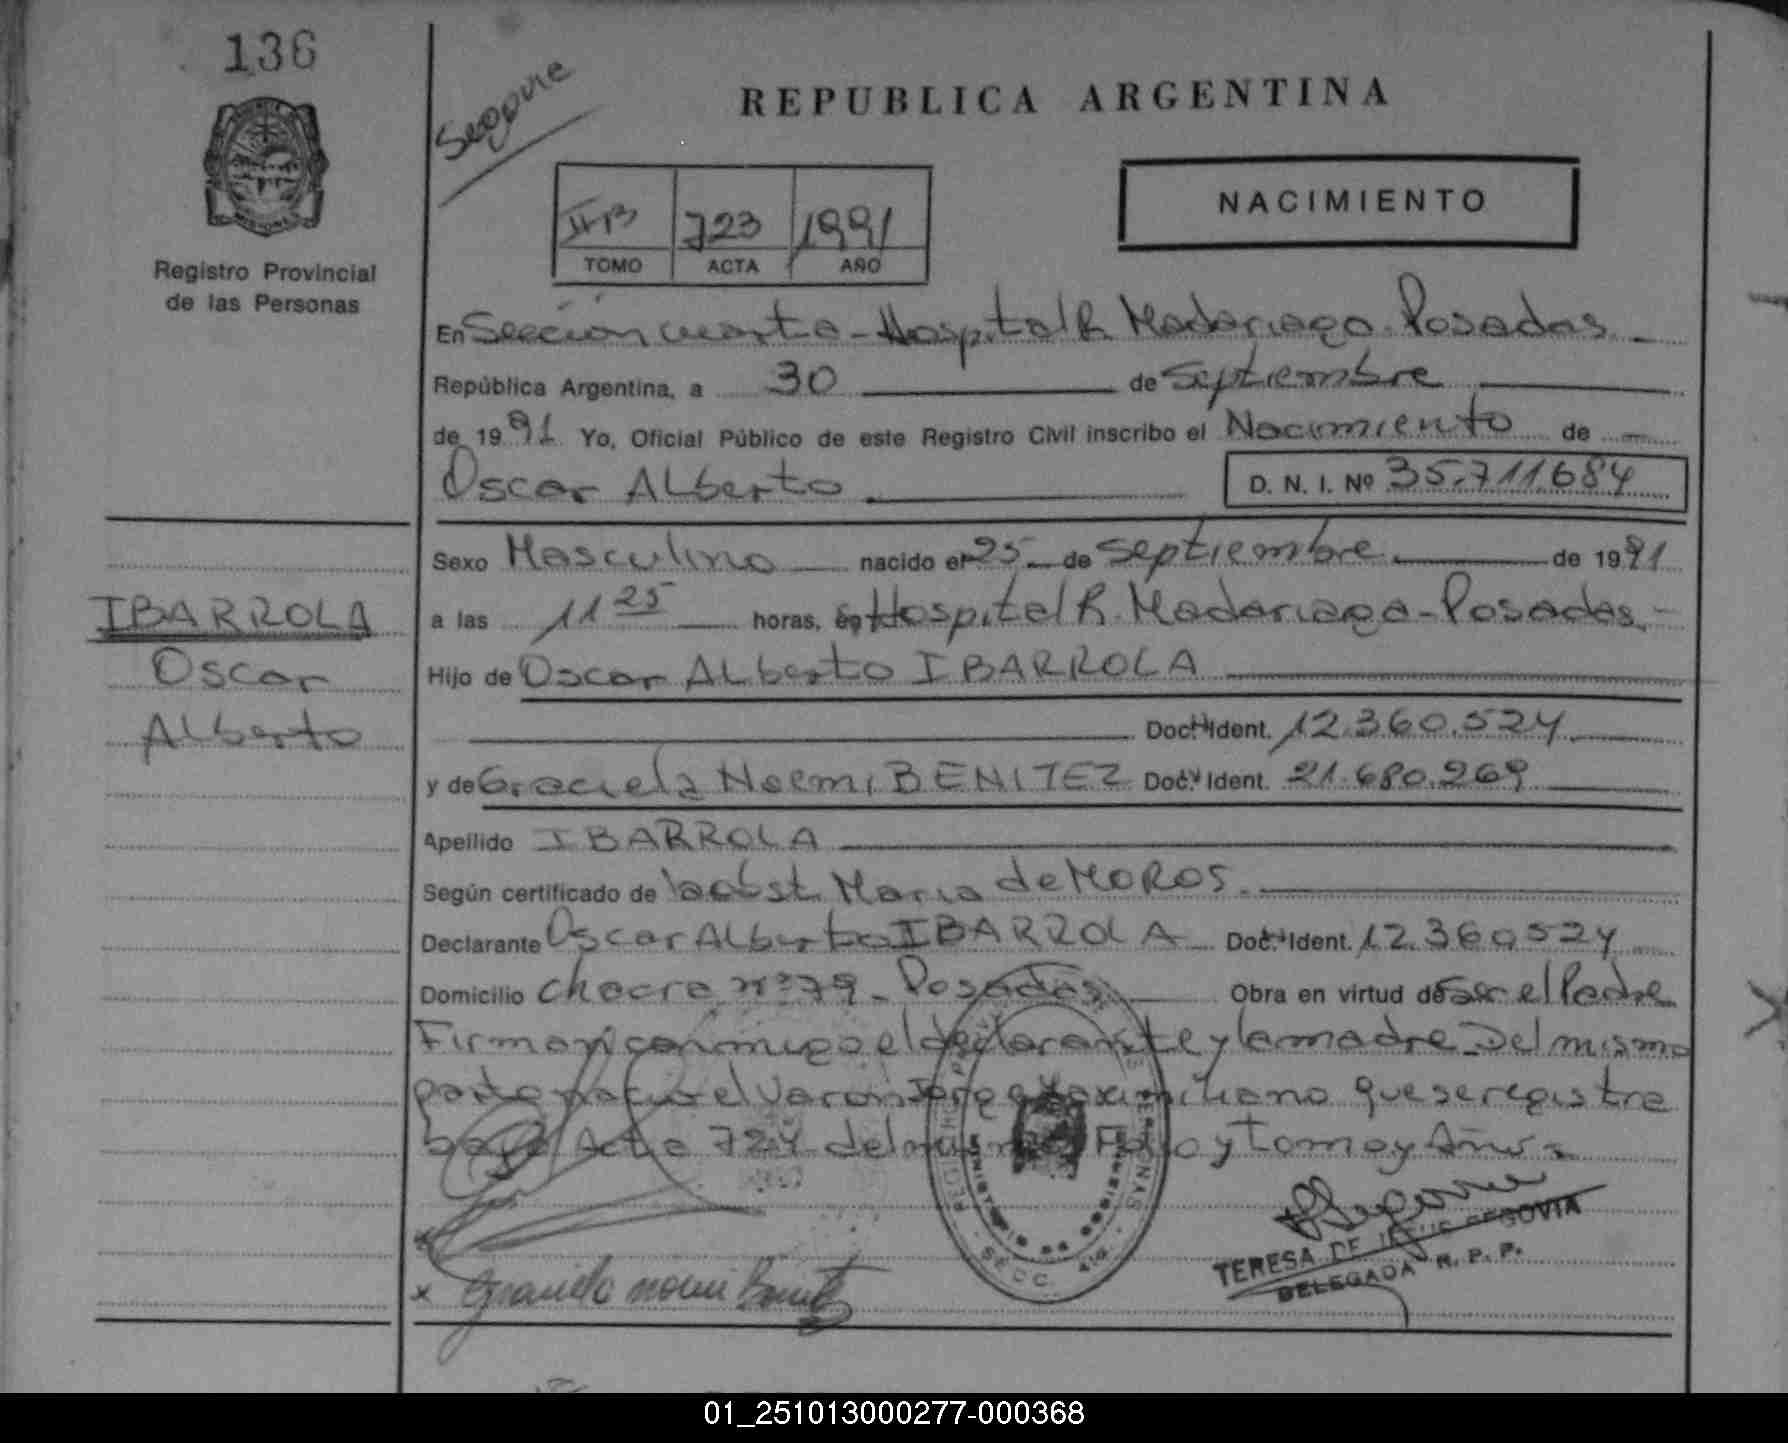 136
Segovie
REPUBLICA ARGENTINA
NACIMIENTO
IIB 723 1991
TOMO ACTA AÑO
Registro Provincial
de las Personas
En Sección cuarta - Hospital R. Madariaga. Posadas
República Argentina, a 30 de Septiembre
de 1991 Yo, Oficial Público de este Registro Civil inscribo el Nacimiento de
Oscar Alberto D. N. I. Nº 35.711.684
Sexo Masculino nacido el 25 de Septiembre de 1991
a las 11 25 horas, en Hospital R. Madariaga - Posadas.
Hijo de Oscar Alberto IBARROLA
Doc. Ident. 12.360.524
y de Graciela Noemi BENITEZ Doc. Ident. 21.680.269
Apellido IBARROLA
Según certificado de la obst. Maria de MOROS.
Declarante Oscar Alberto IBARROLA Doc. Ident. 12.360524
Domicilio chacra nº 79 - Posadas. Obra en virtud de Ser el Padre
Firman conmigo el declarante y la madre. Del mismo
parto nació el varon Jorge Maximiliano que se registra
bajo Acta 724 del mismo Folio y Tomo y Año.
IBARROLA
Oscar
Alberto
x Graciela noemi Benitez
TERESA DE JESUS SEGOVIA
DELEGADA R. P. P.
SECC. 4ta
01_251013000277-000368